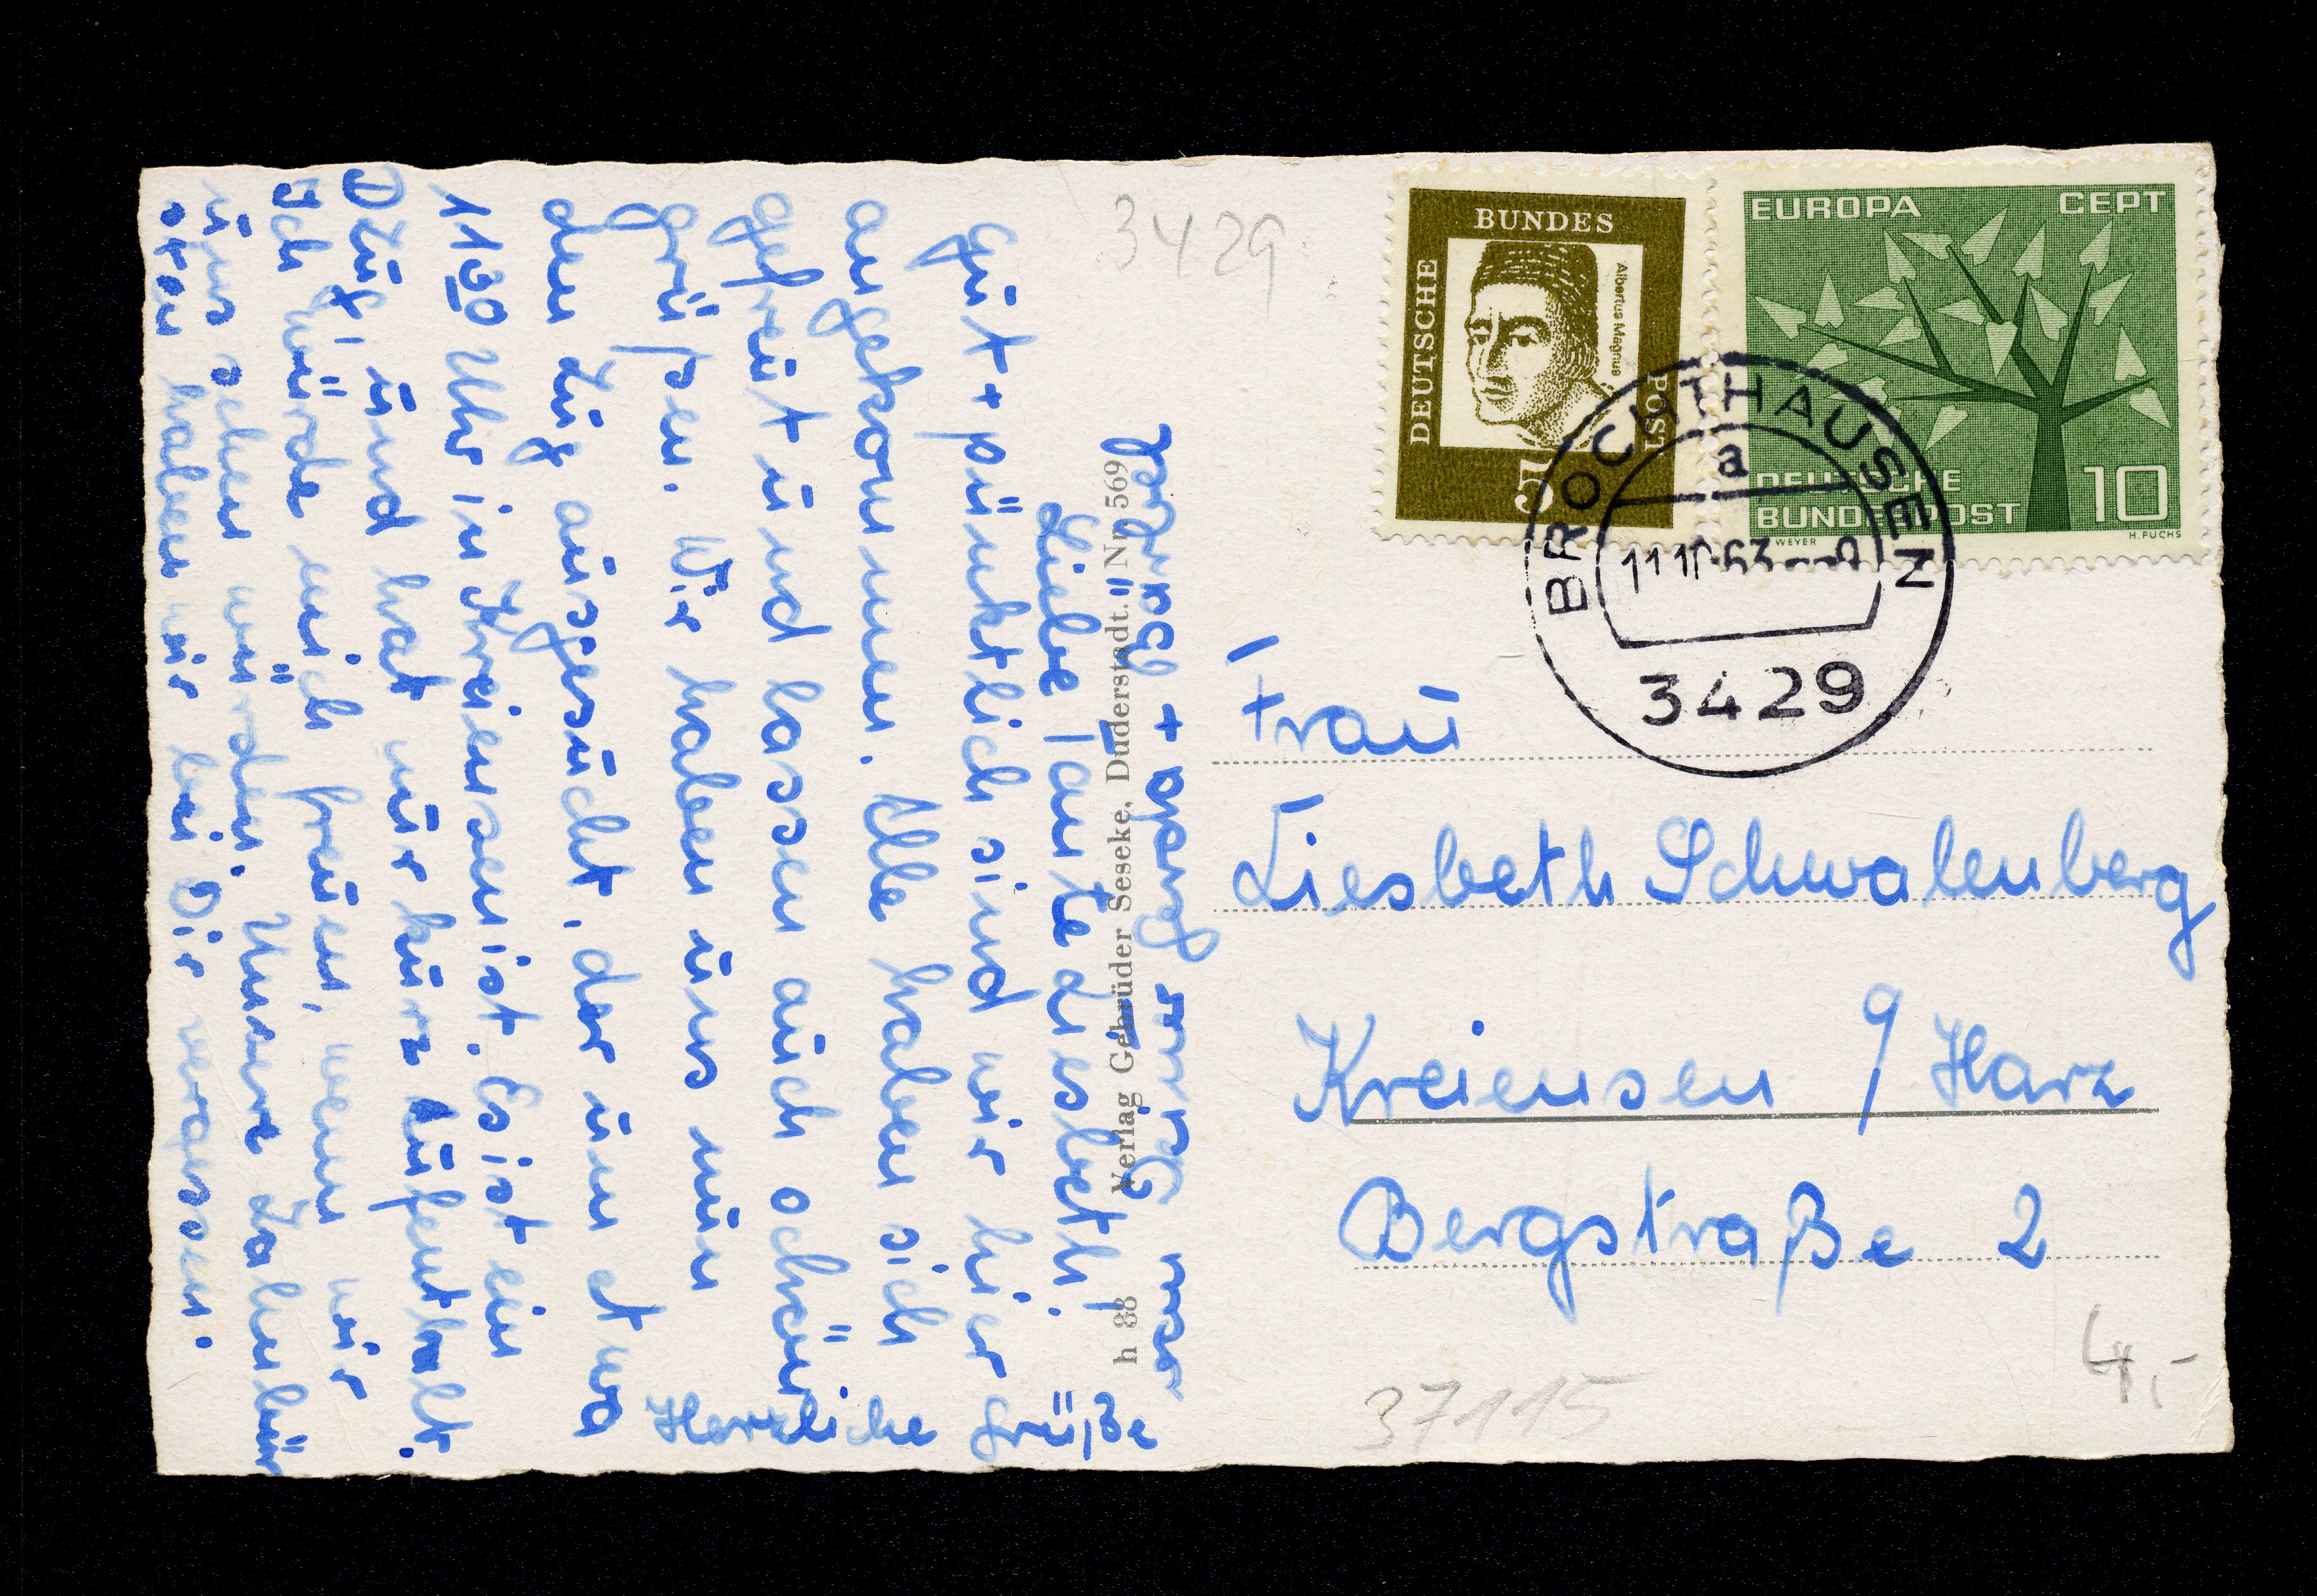 Liebe Tante Liesbeth!
Gut + pünktlich sind wir hier
angekommen. Alle haben sich
gefreut und lassen auch schön
grüßen. Wir haben uns nun
den Zug ausgesucht, der um etwa
11 30 Uhr in Kreiensen ist. Es ist ein
D Zug, und hat nur kurz Aufenthalt.
Ich würde mich freuen, wenn wir
uns sehen würden. Unsere
haben wir bei Dir vergessen.
Herzliche Grüße
h 38 Verlag Gebrüder Seseke, Duderstadt. Nr. 569
3429
DEUTSCHE BUNDES POST
Albertus Magnus
5
EUROPA CEPT
DEUTSCHE
BUNDESPOST 10
WEYER H. FUCHS
BROCHTHAUSEN
a
3429
Frau
Liesbeth Schwalenberg
Kreiensen / Harz
Bergstraße 2
4,-
37115